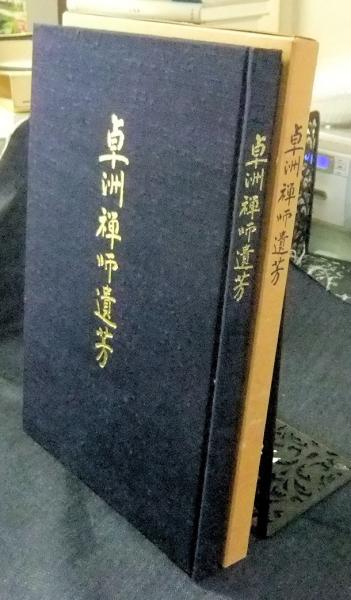 卓洲禅師遺芳
卓洲禅師遺芳
卓洲禅師遺芳